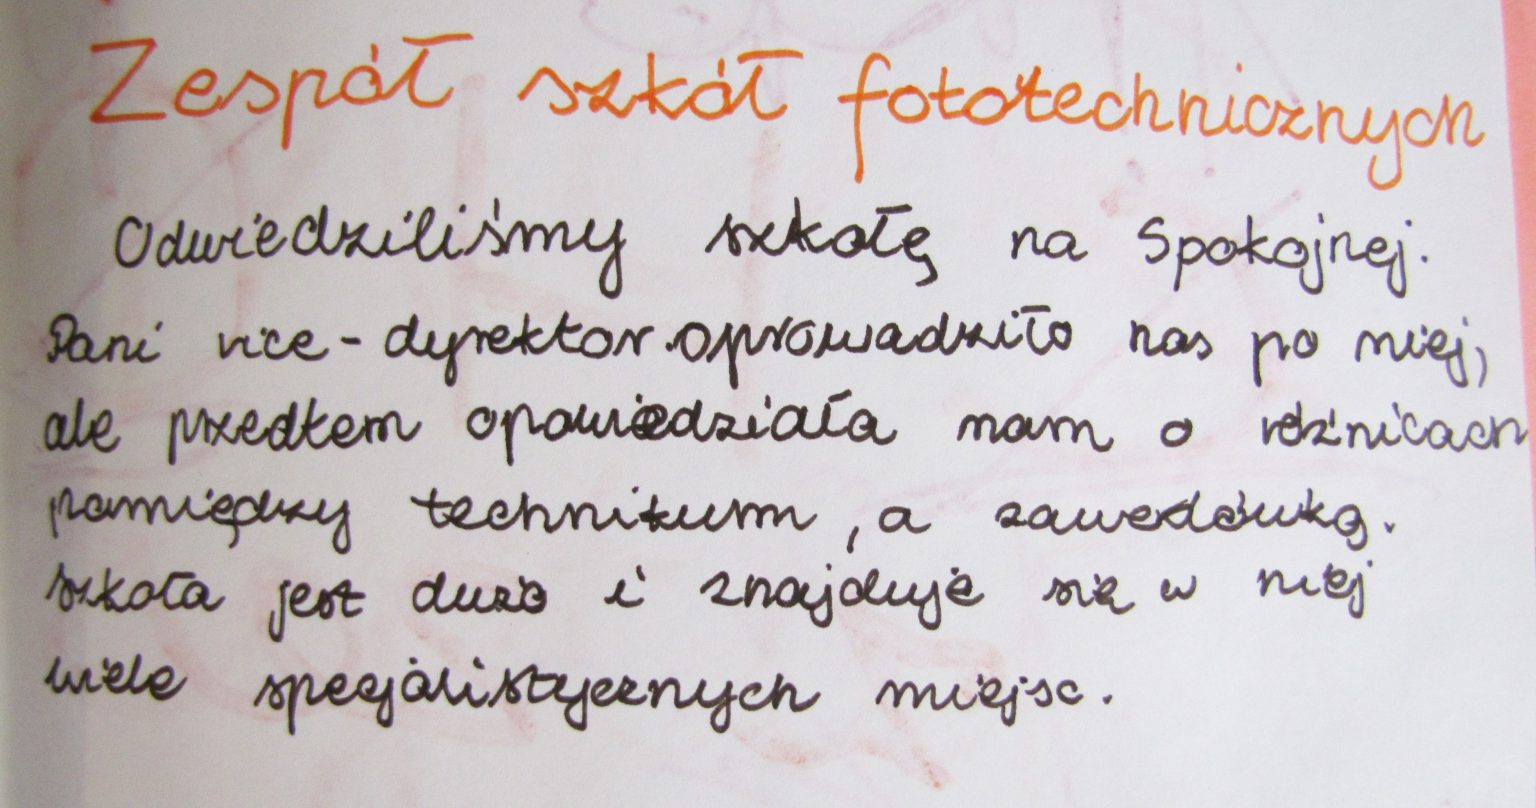 Zespół szkół fototechnicznych
Odwiedziliśmy szkołę na Spokojnej.
Pani vice-dyrektor oprowadziła nas po niej,
ale przedtem opowiedziała nam o różnicach
pamiędzy technikum, a zawodówką.
Szkoła jest duża i znajduje się w niej
wiele specjalistycznych miejsc.